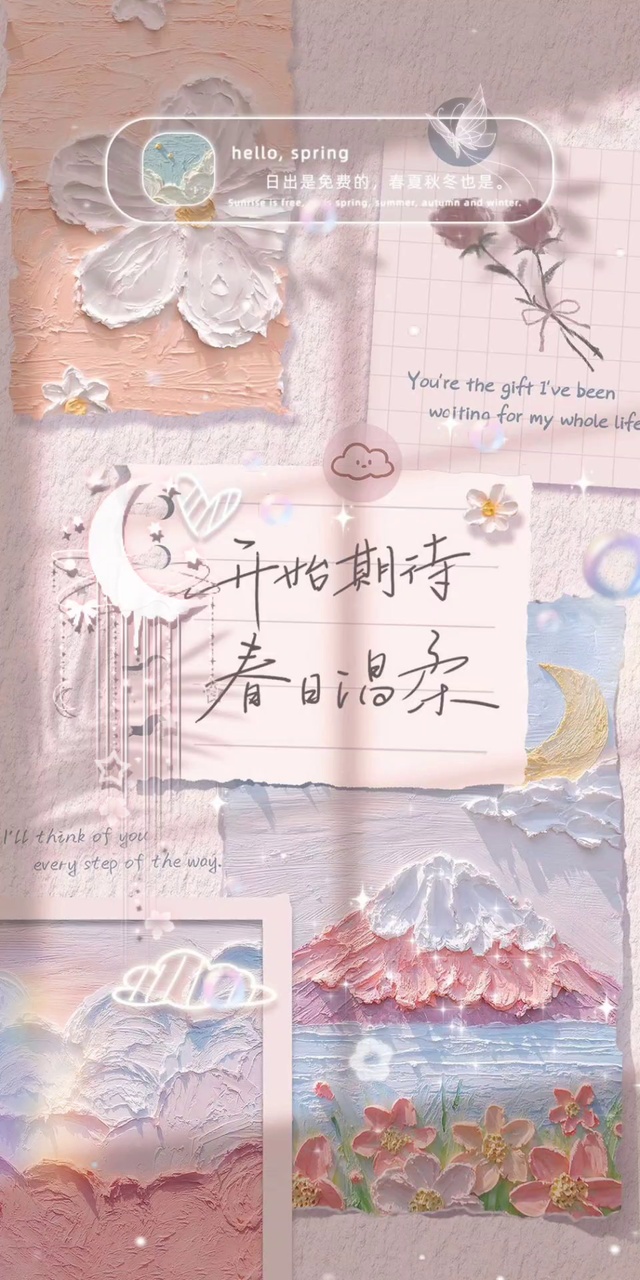 hello, spring
日出是免费的，春夏秋冬也是。
Sunrise is free, spring, summer, autumn and winter.
You're the gift I've been
waiting for my whole life
开始期待
春日温柔
I'll think of you
every step of the way.